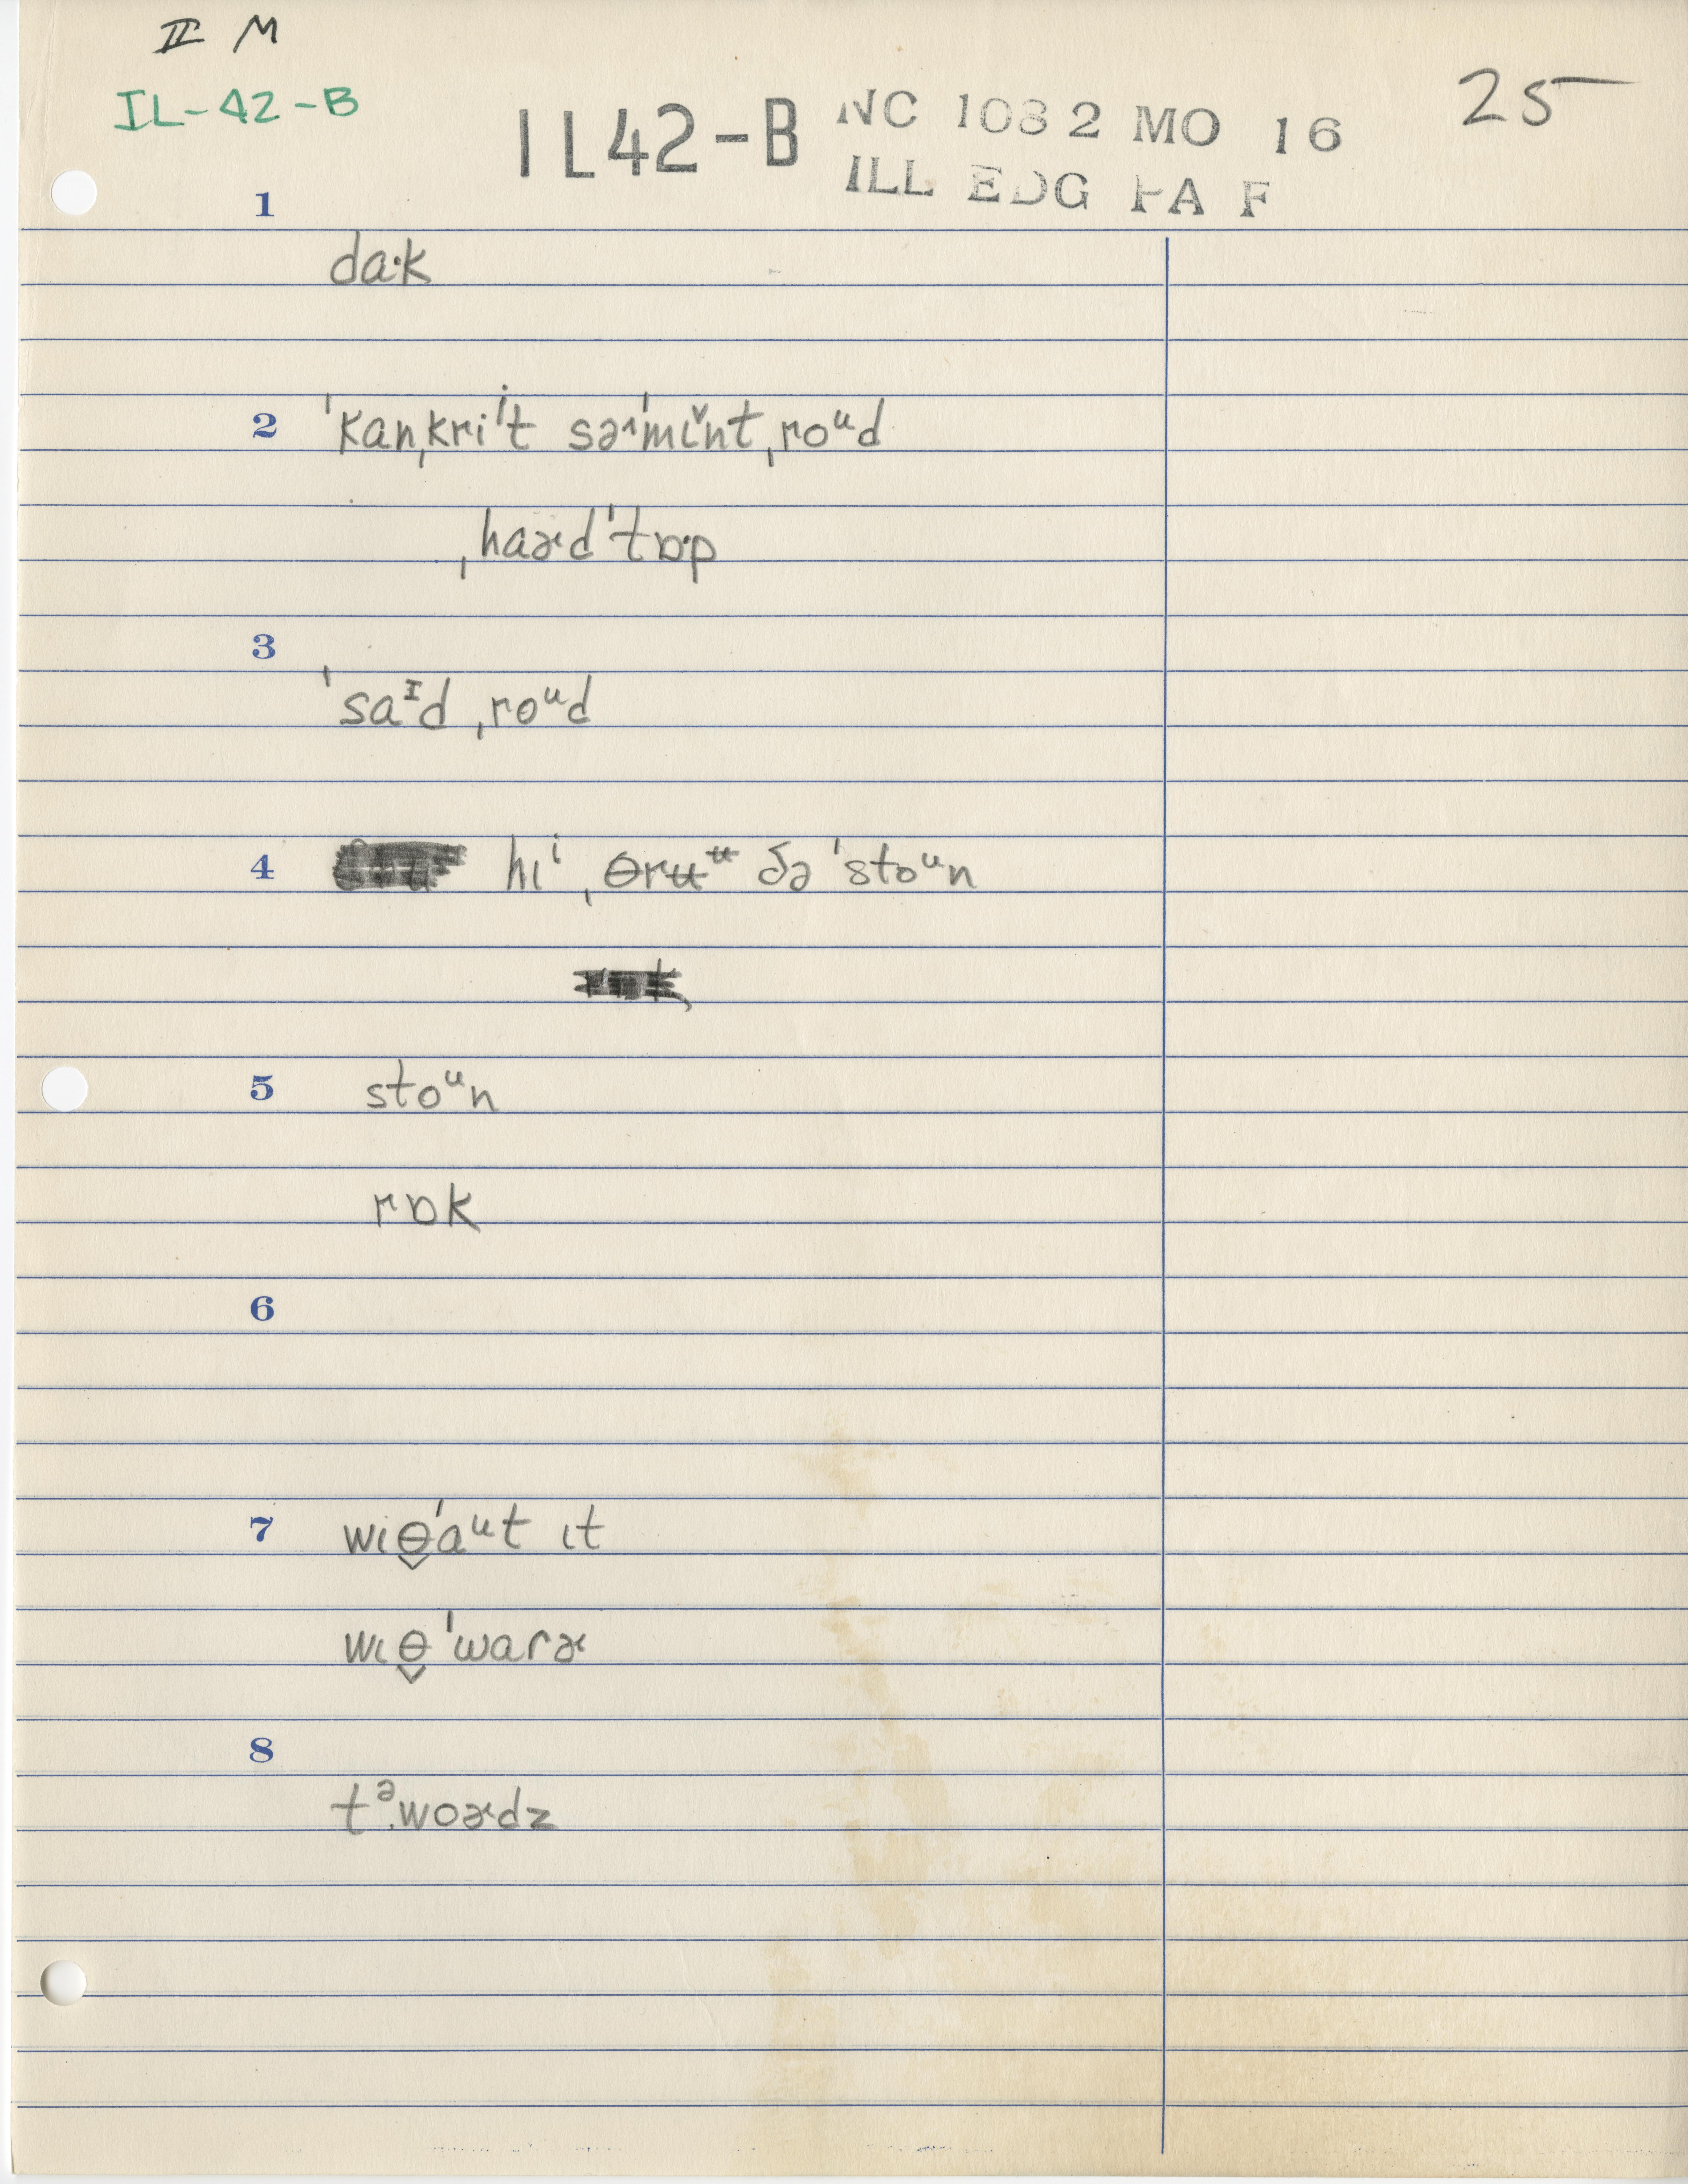 II M
IL-42-B
IL42-B NC 1082 MO 16 25
ILL EDG PA F
1
dɑ·k
2 ˈkɑnˌkriⁱt səˈmɪ̌nt ˌroᵘd
ˌhɑɚdˈtɒ·p
3
ˈsaᴵd ˌroᵘd
4 hɪⁱ ˌθrʉᶶ ðə ˈstoᵘn
5 stoᵘn
rɒk
6
7 wɪθ̬ˈɑᵘt ɪt
wɪθ̬ ˈwɑrɚ
8
tᵊ.woɚdz